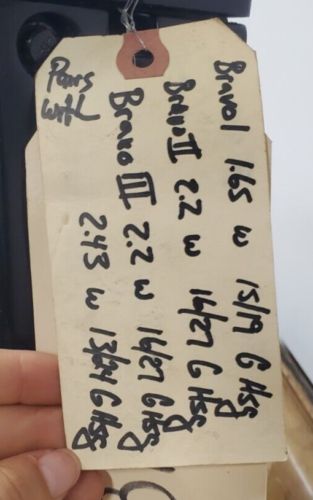 Pairs
with
Bravo 1 1.65 w 15/19 G Hsg
Bravo II 2.2 w 16/27 G Hsg
Bravo III 2.2 w 16/27 G Hsg
2.43 w 13/24 G Hsg